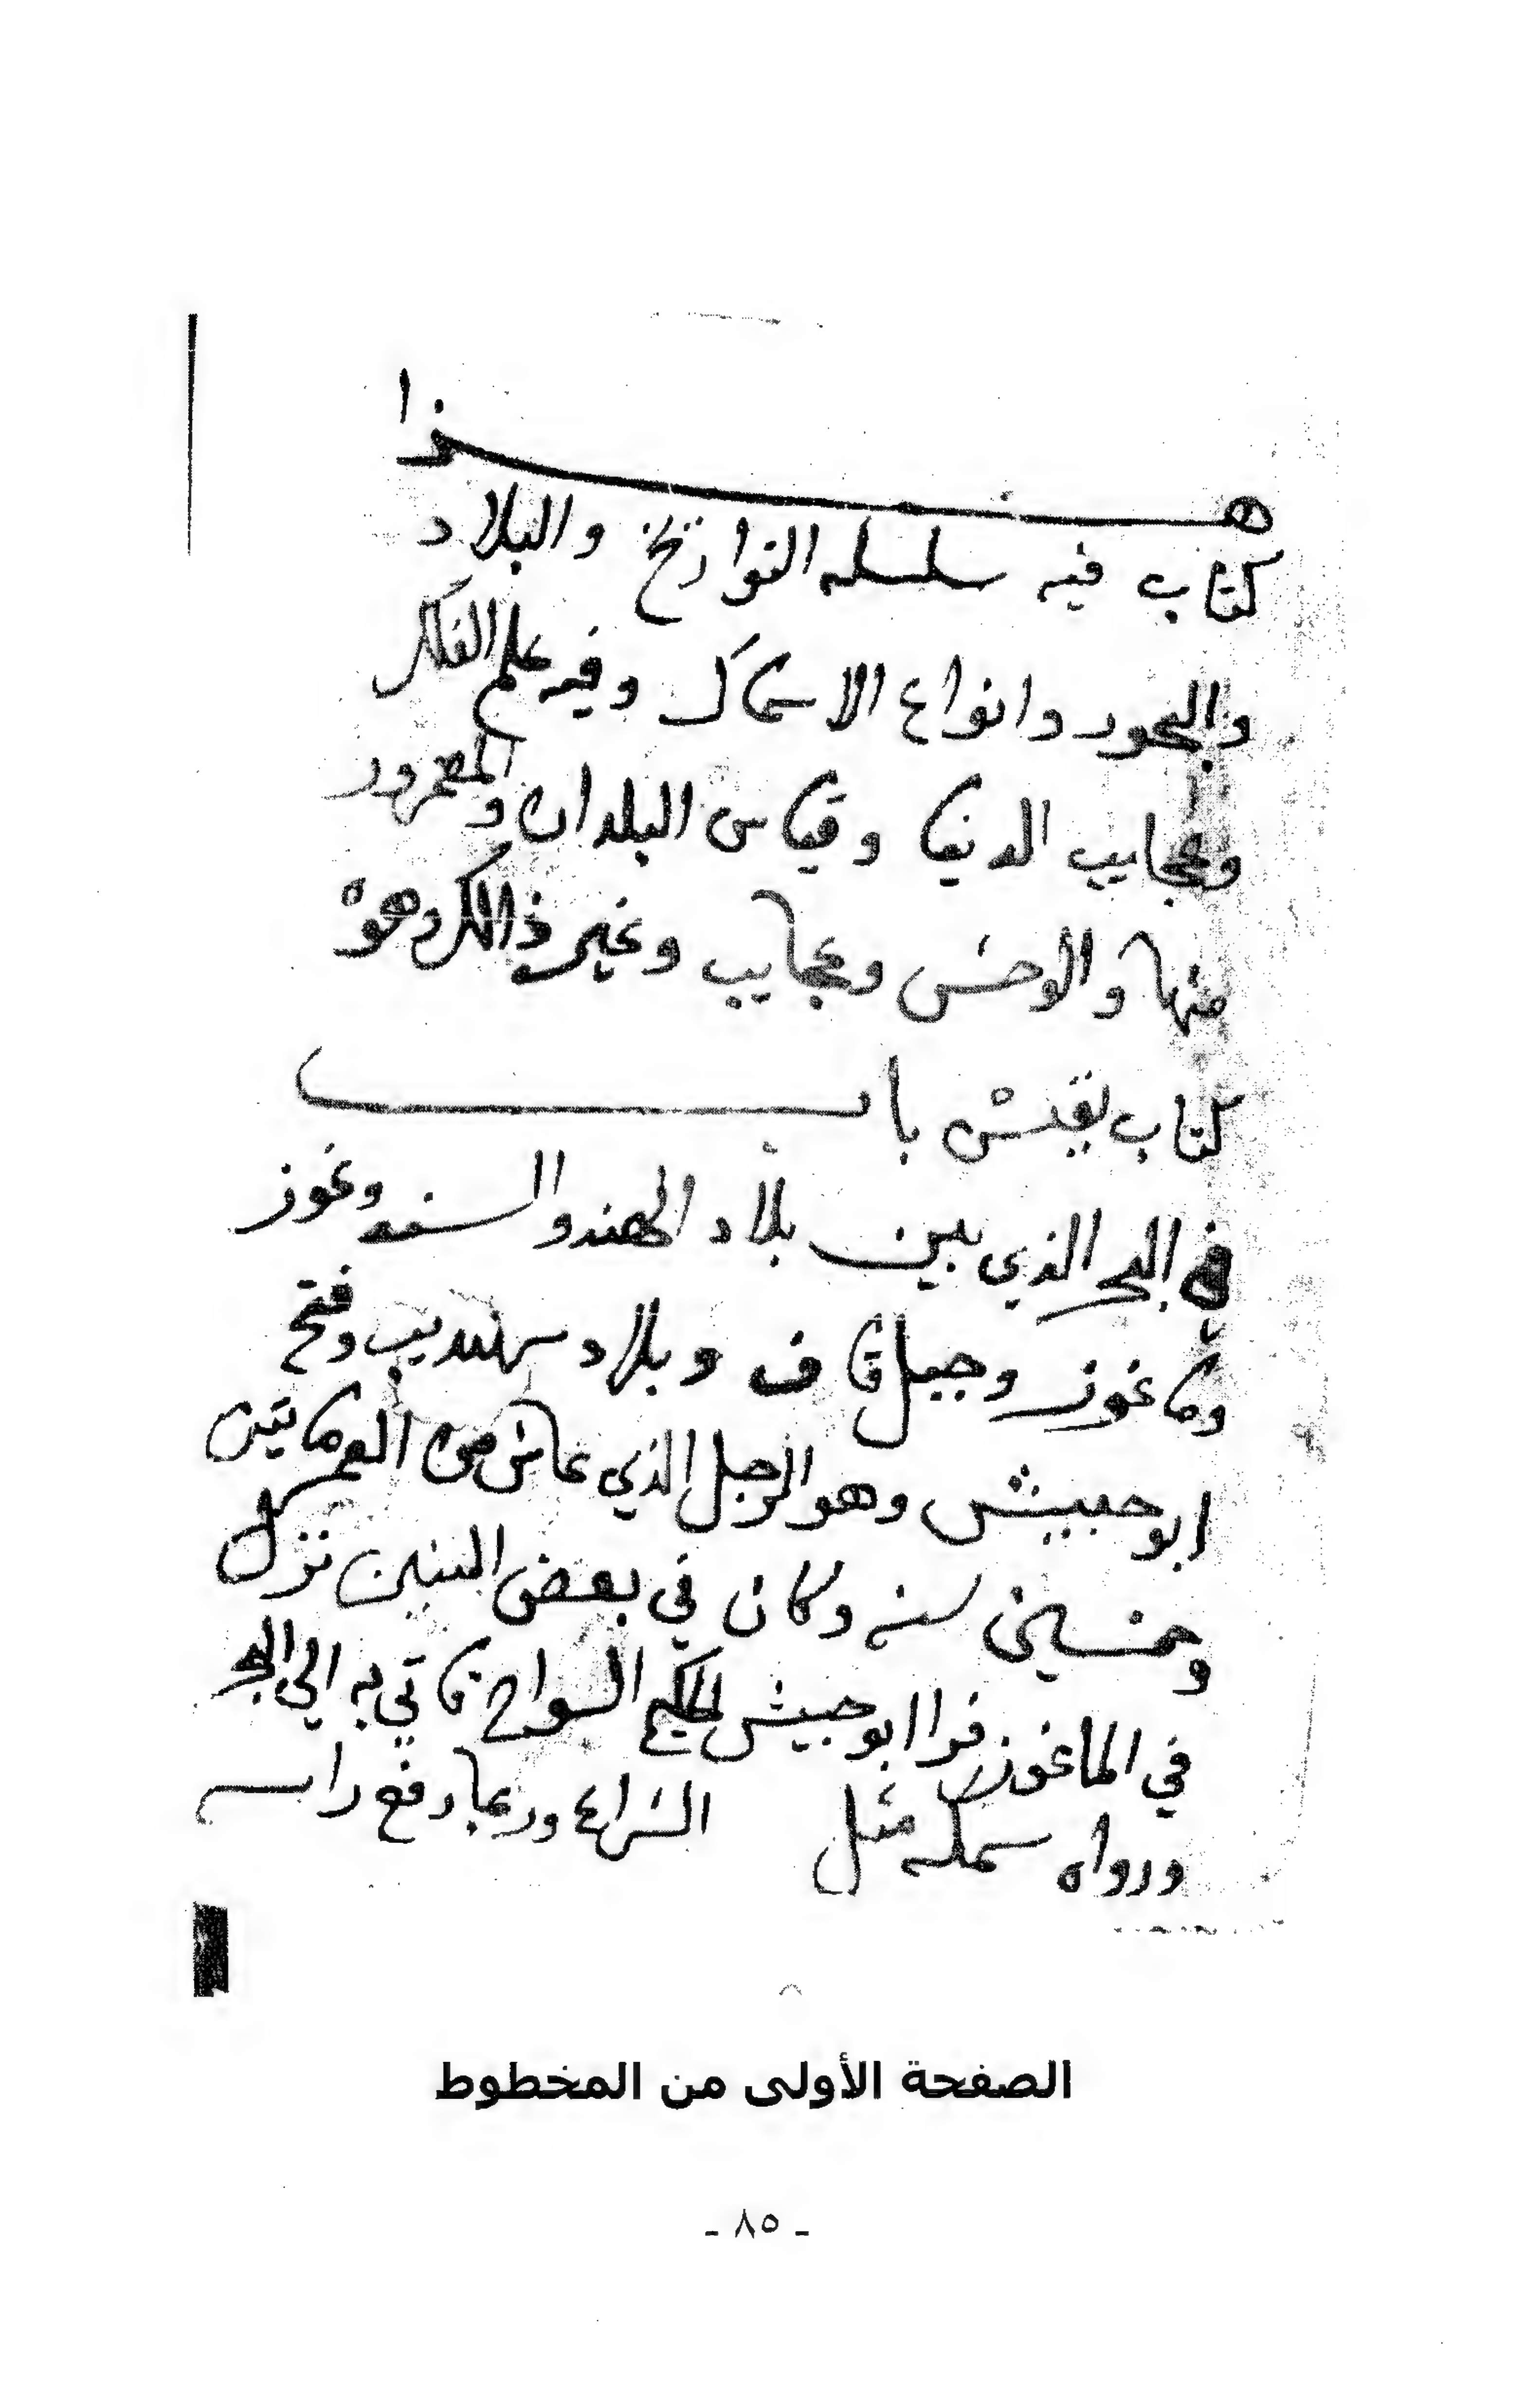 هذا
كتاب فيه سلسله التواريخ والبلاد
والبحور وانواع الاسماك وفيه علم الفلك
وعجايب الدنيا وقياس البلدان والمعمور
منها والوحش وعجايب وغير ذالك وهو
كتاب باب
في البحر الذي بين بلاد الهند والسند وغوز
وماغوز وجبل قاف وبلاد سرنديب وفتح
ابو حبيش وهو الرجل الذي عاش من العمر مايتين
وخمسين سنه وكان في بعض السنين نزل
في الماغوز فرا ابو حبيش الحكيم السواح تي به الي البحر
ورواه سمكه مثل الشراع وربما رفع راسه
الصفحة الأولى من المخطوط
- ٨٥ -